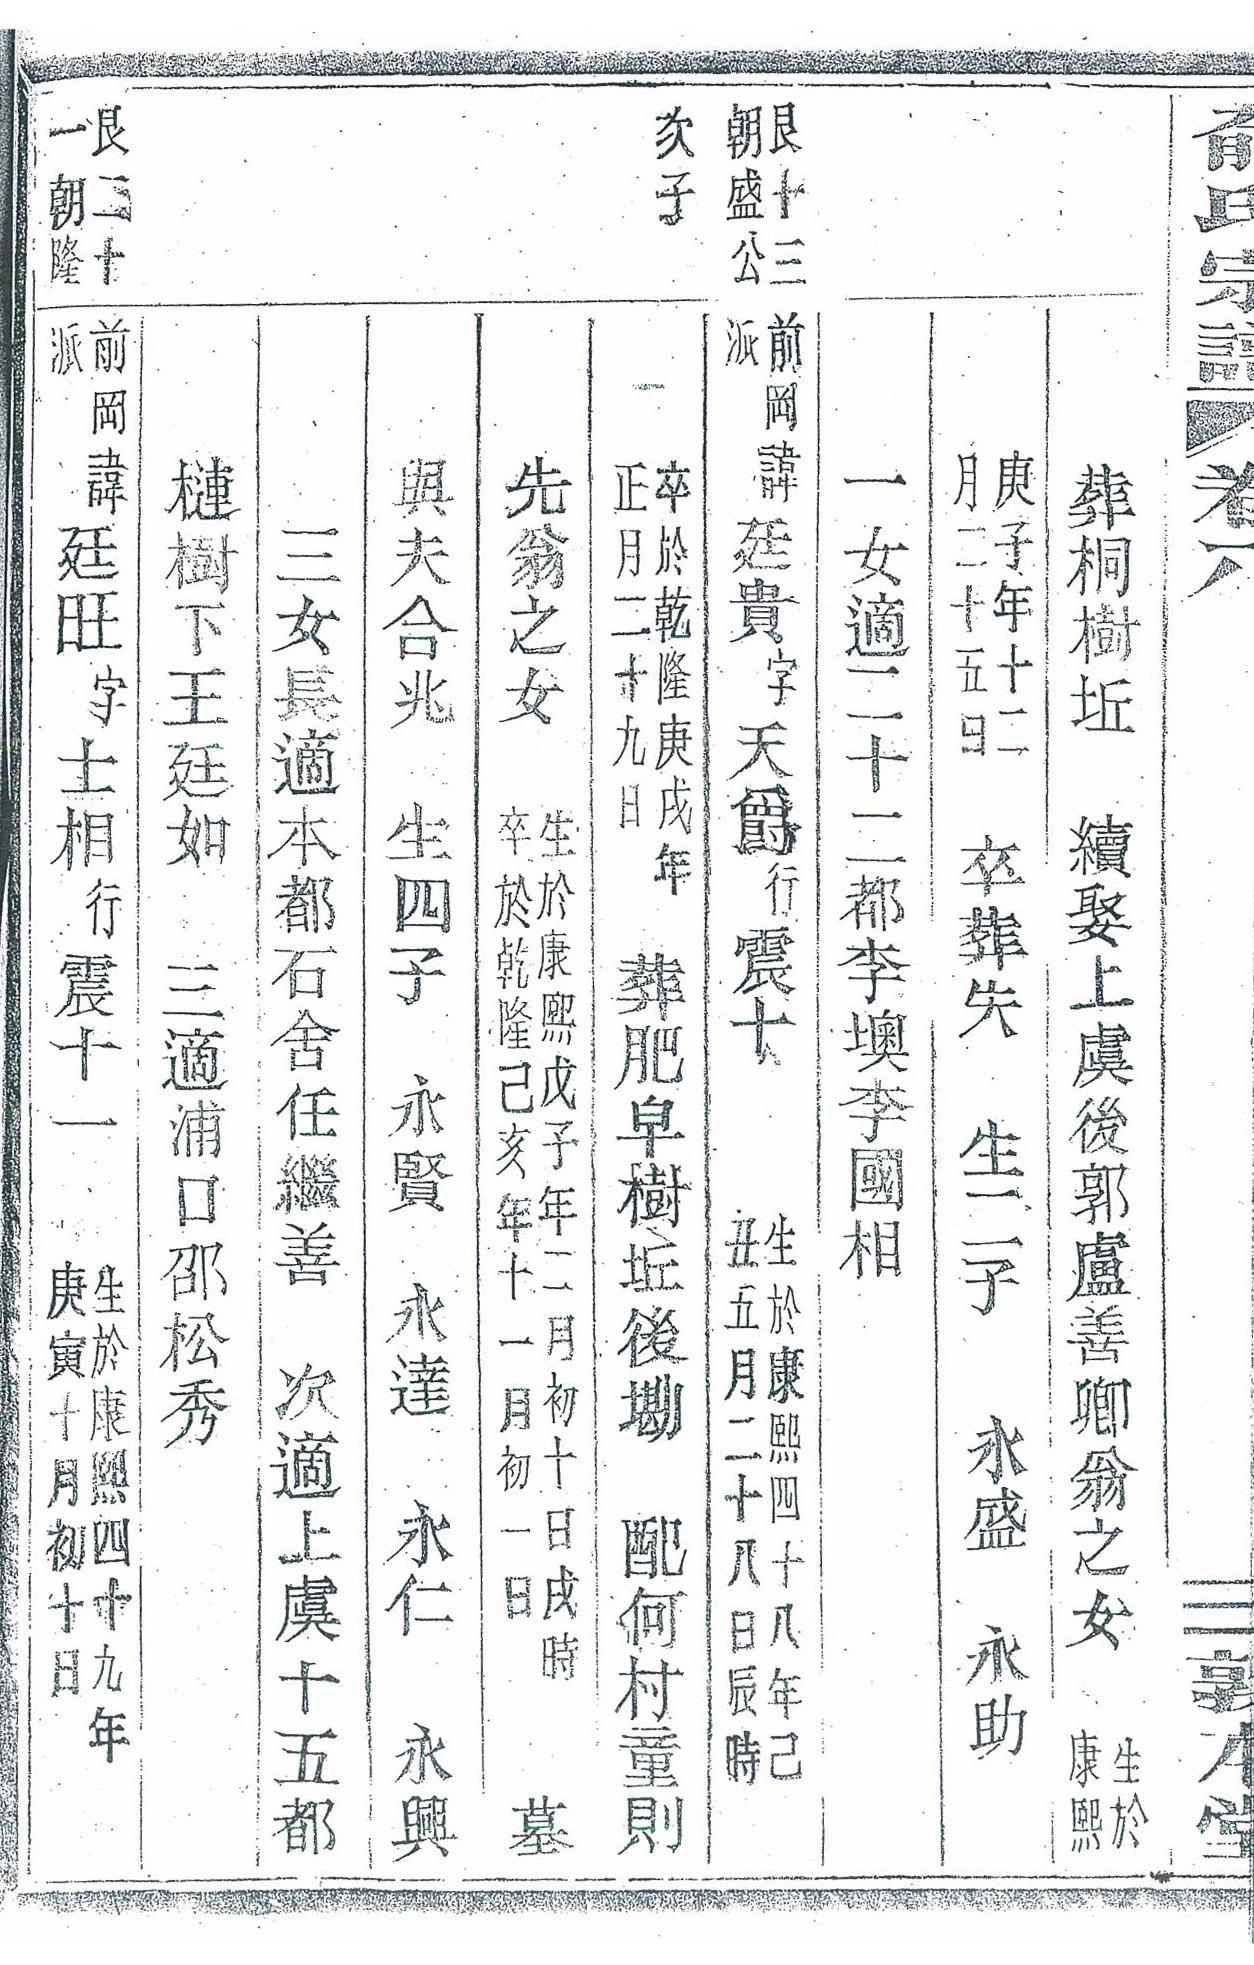 俞氏宗譜 卷六 三 敦本堂
葬桐樹坵 續娶上虞後郭盧善卿翁之女 生於康熙
庚子年十二月二十五日 卒葬失 生二子 永盛 永助
一女適二十二都李墺李國相
艮十三朝盛公
前岡派 諱廷貴字天爵行震十 生於康熙四十八年己丑五月二十八日辰時
次子
卒於乾隆庚戌年正月二十九日 葬肥皁樹坵後墈 配何村童則
先翁之女 生於康熙戊子年二月初十日戌時卒於乾隆己亥年十一月初一日 墓
與夫合兆 生四子 永賢 永達 永仁 永興
三女長適本都石舍任繼善 次適上虞十五都
槤樹下王廷如 三適浦口邵松秀
艮二十一朝隆
前岡派 諱廷旺字士相行震十一 生於康熙四十九年庚寅十月初十日